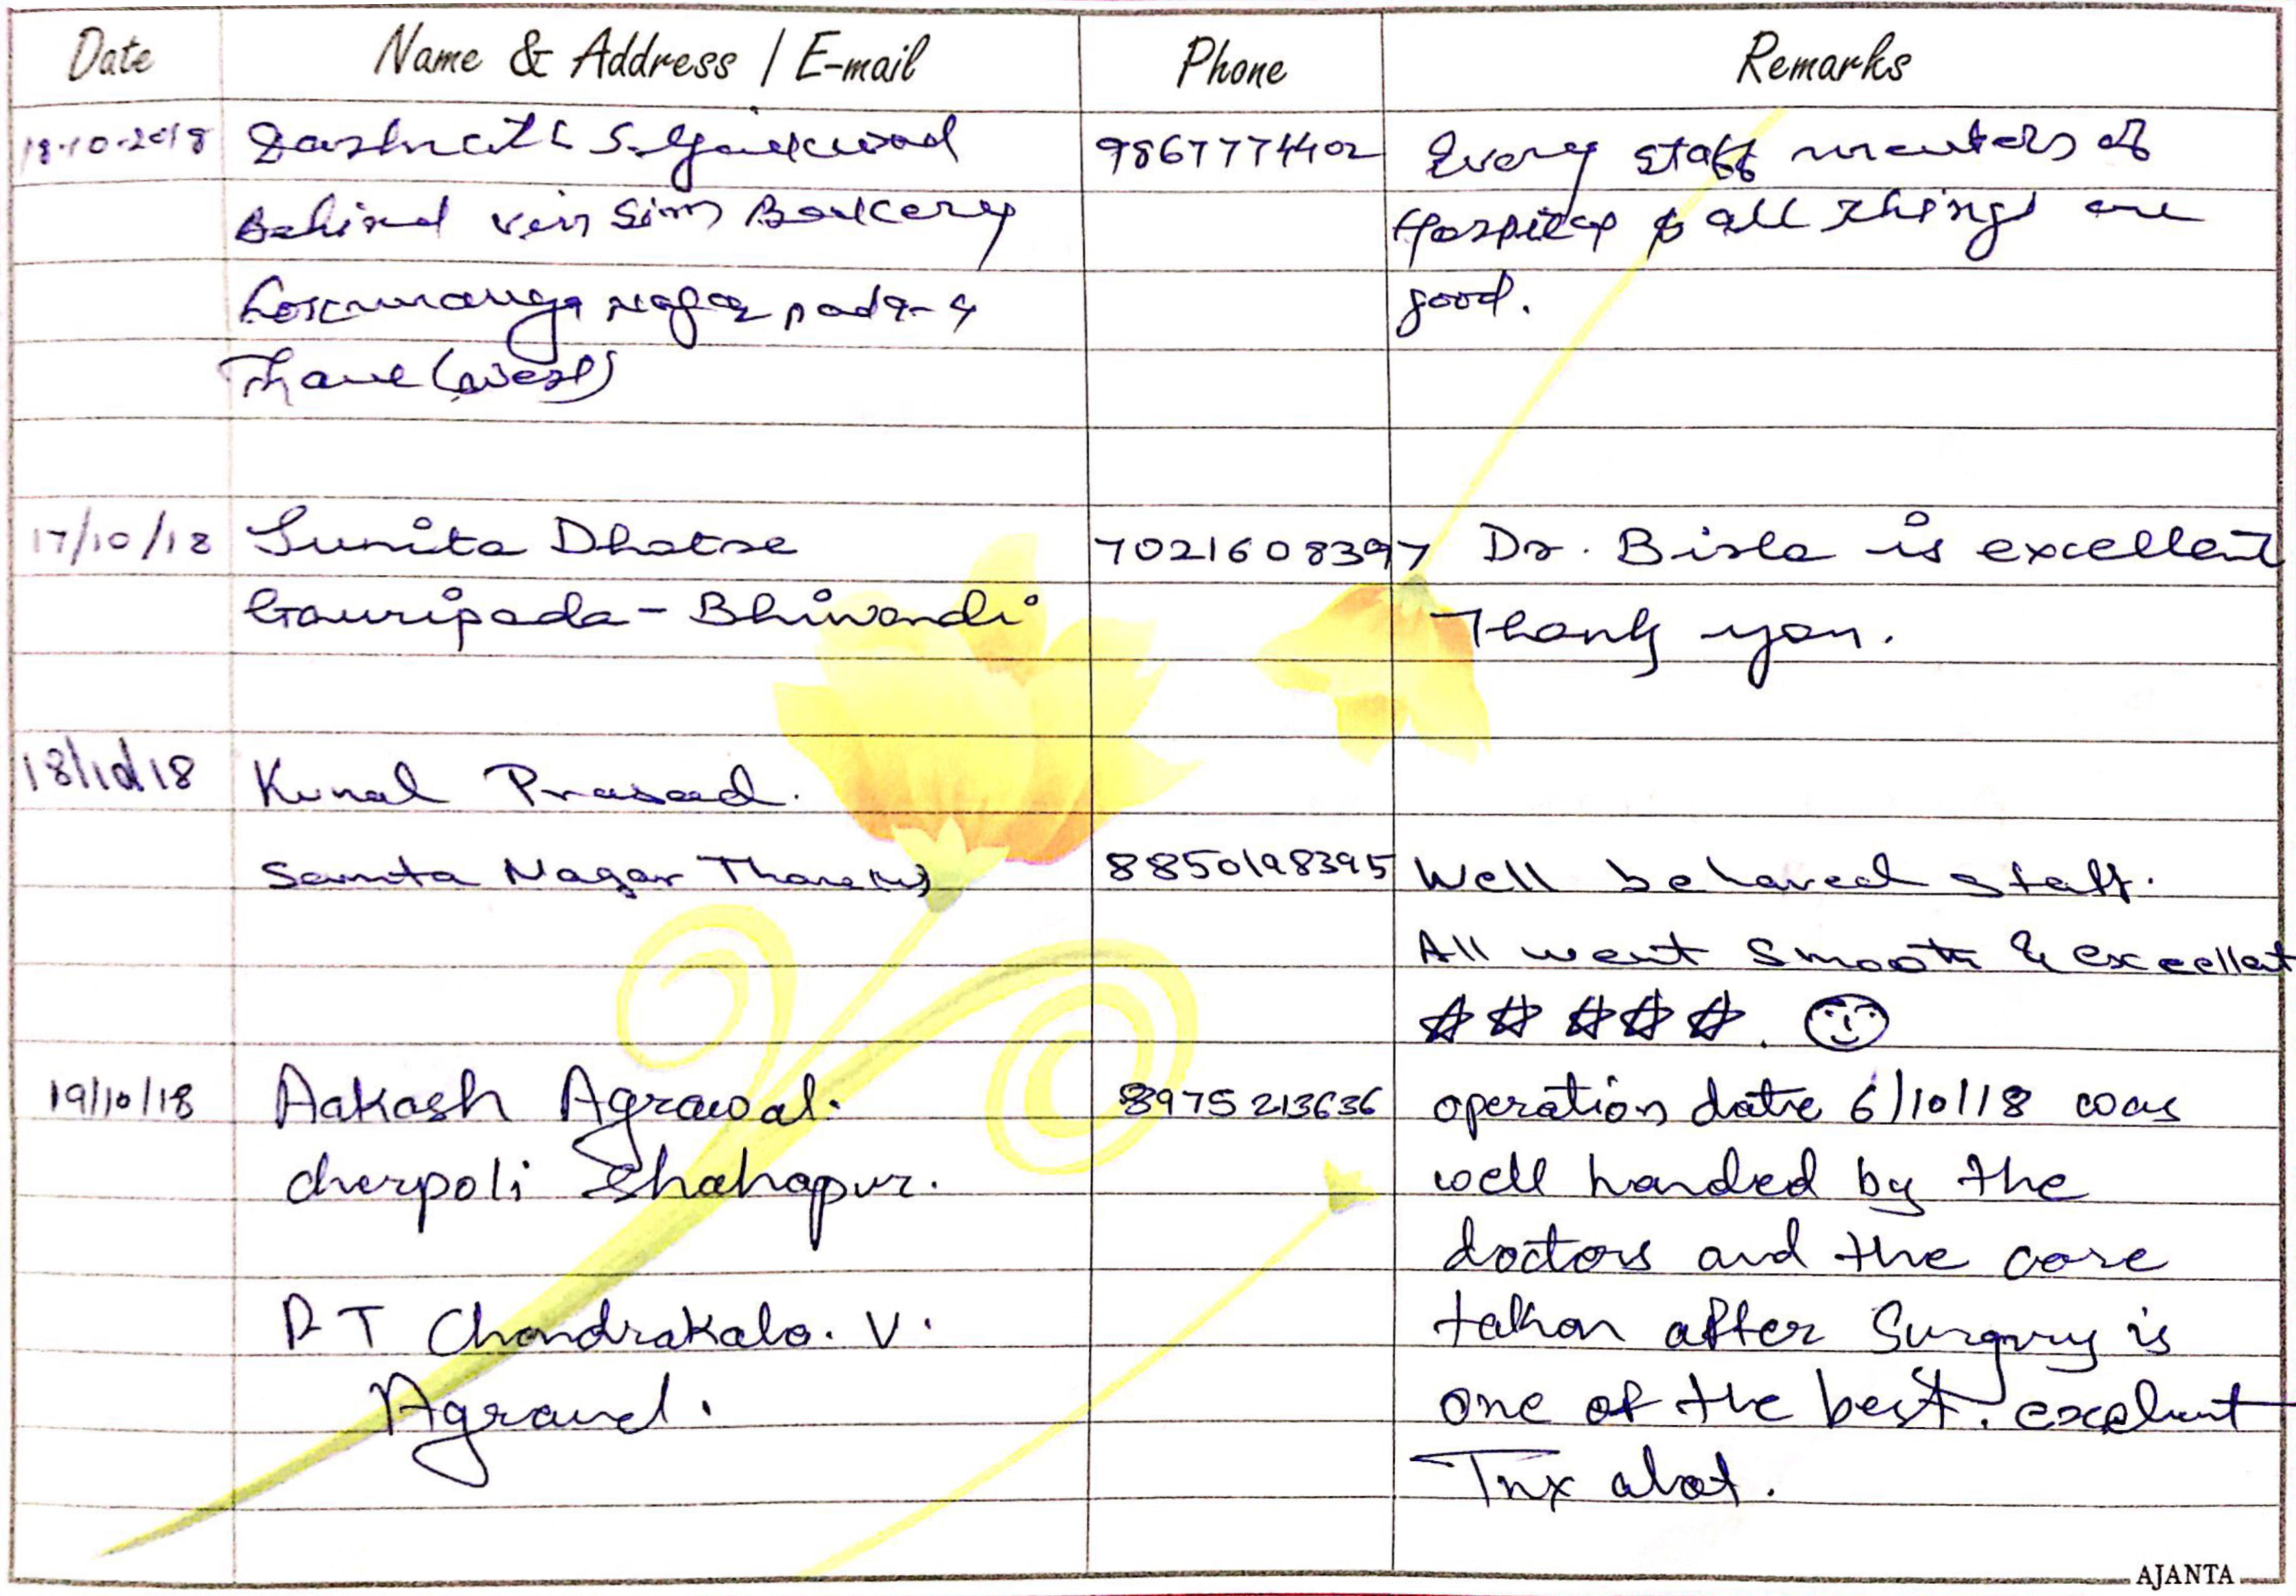 Date Name & Address / E-mail Phone Remarks
18-10-2018 S. Gaikwad 9867774402 Every staff menters of
Behind Bakery Hospital & all things are
Nagar pada-4 good.
Thane (West)
17/10/18 Sunita Dhatre 7021608397 Dr. Birla is excellent
Gauripada - Bhiwandi Thank you.
18/10/18 Kunal Prasad.
Samta Nagar Thane (w) 8850198395 Well behaved staff.
All went smooth & excellent
☆☆☆☆☆.
19/10/18 Aakash Agrawal. 8975213636 operation date 6/10/18 was
cherpoli Shahapur. well handed by the
doctors and the care
P T Chandrakala. V. taken after Surgury is
Agrawal. one of the best. excelunt
Tnx alot.
AJANTA